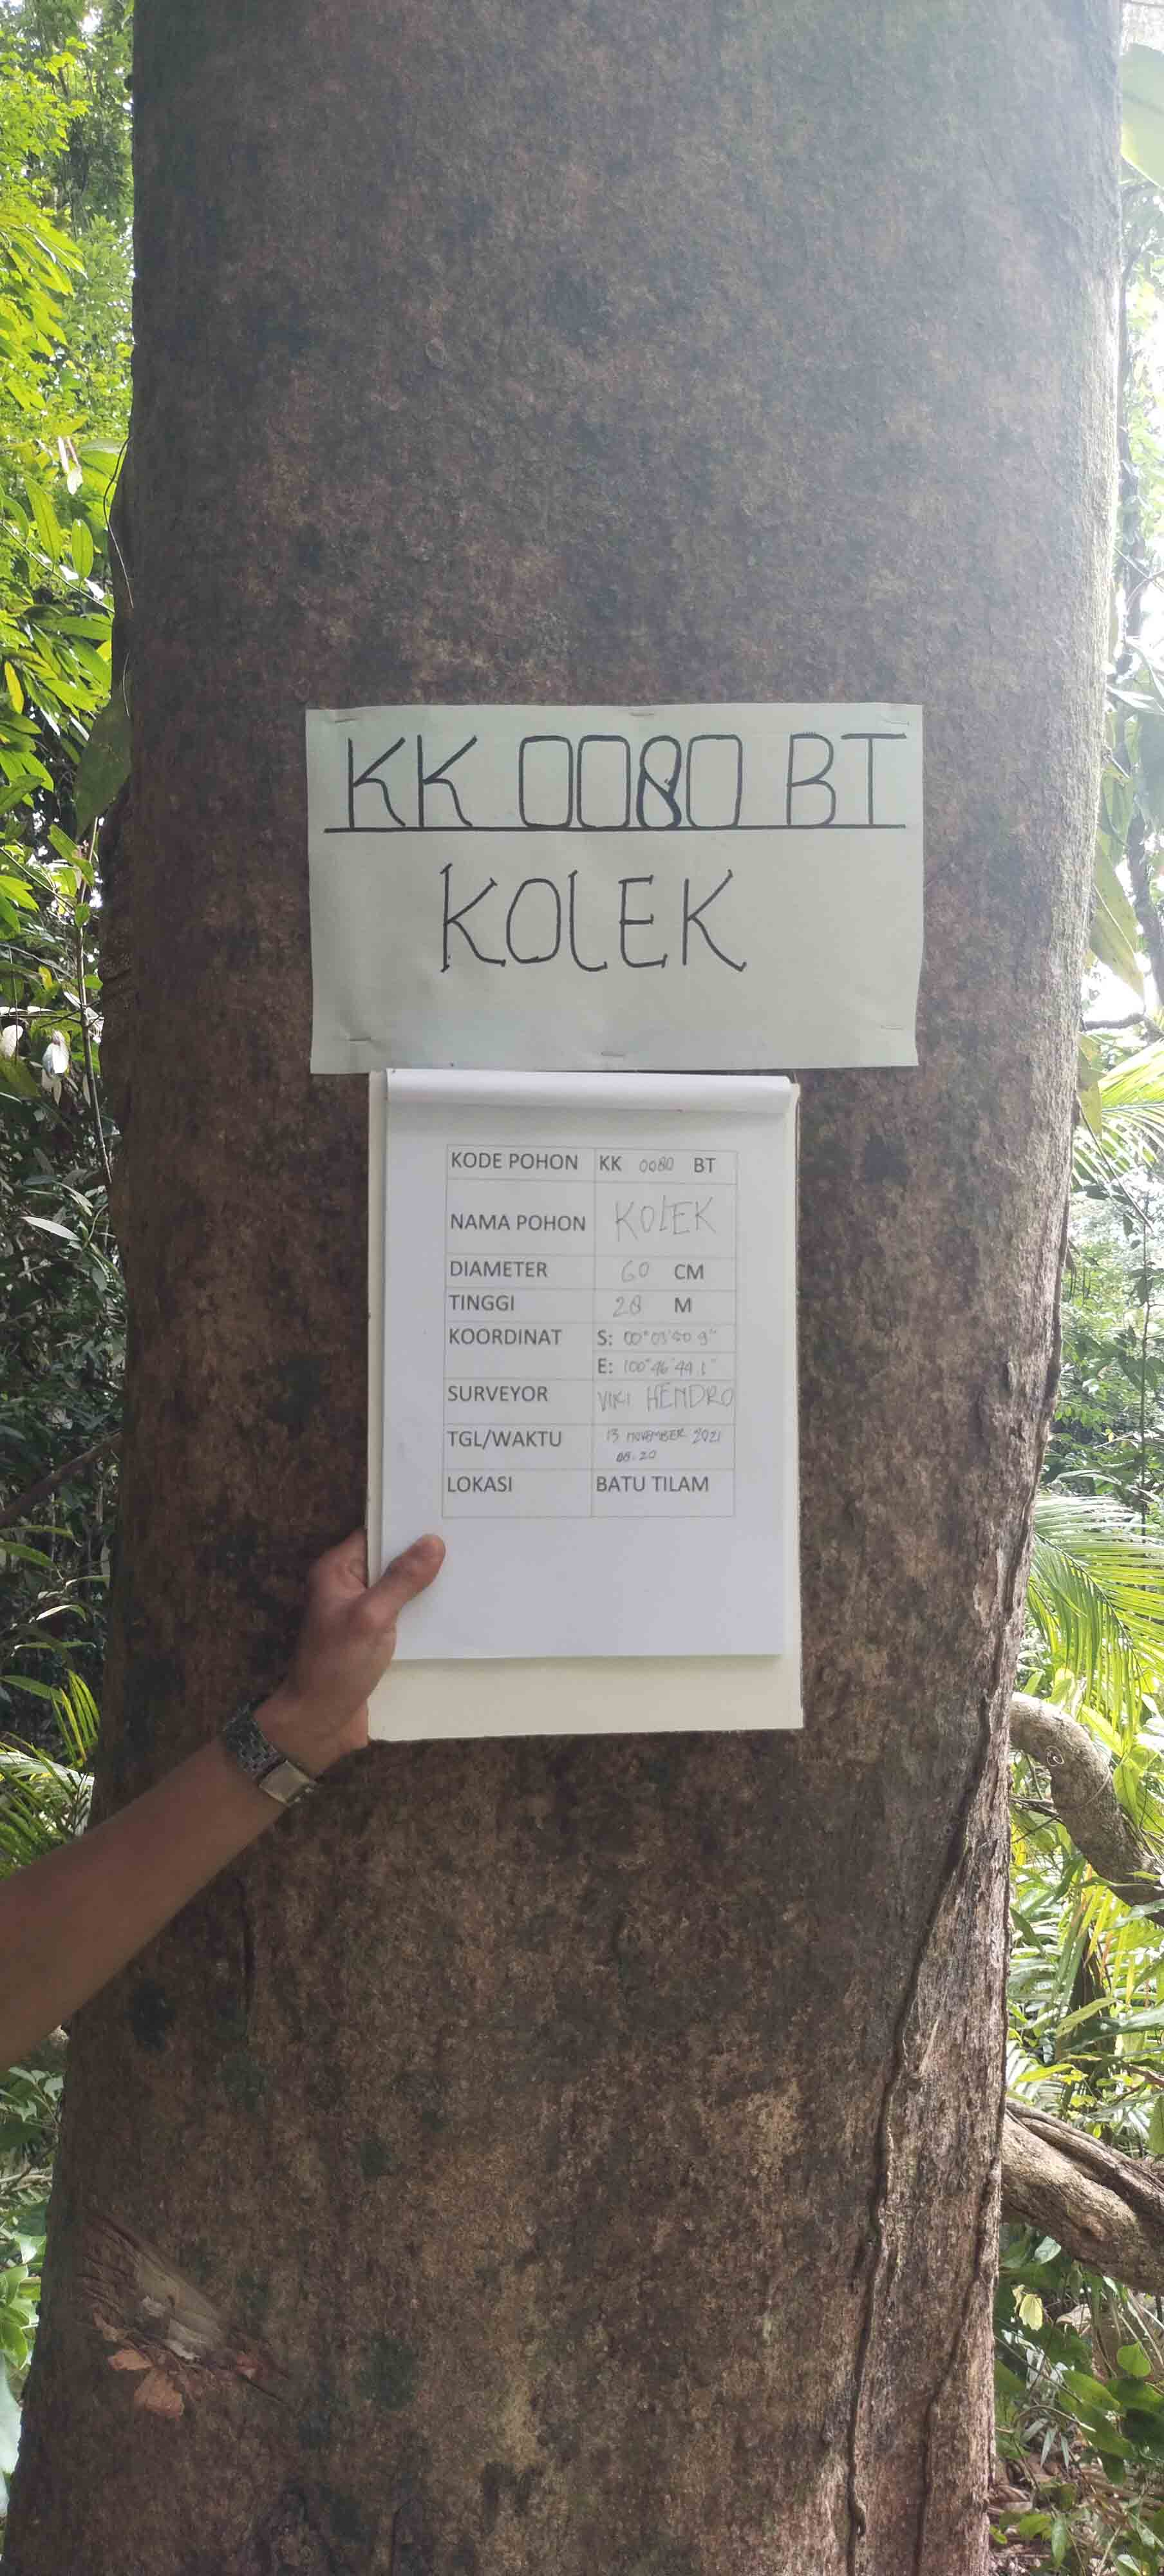 KK 0080 BT
KOLEK
KODE POHON KK 0080 BT
NAMA POHON KOLEK
DIAMETER 60 CM
TINGGI 28 M
KOORDINAT S: 00°03'50.9"
E: 100°46'44.1"
SURVEYOR VIKI HENDRO
TGL/WAKTU 13 NOVEMBER 2021
08:20
LOKASI BATU TILAM